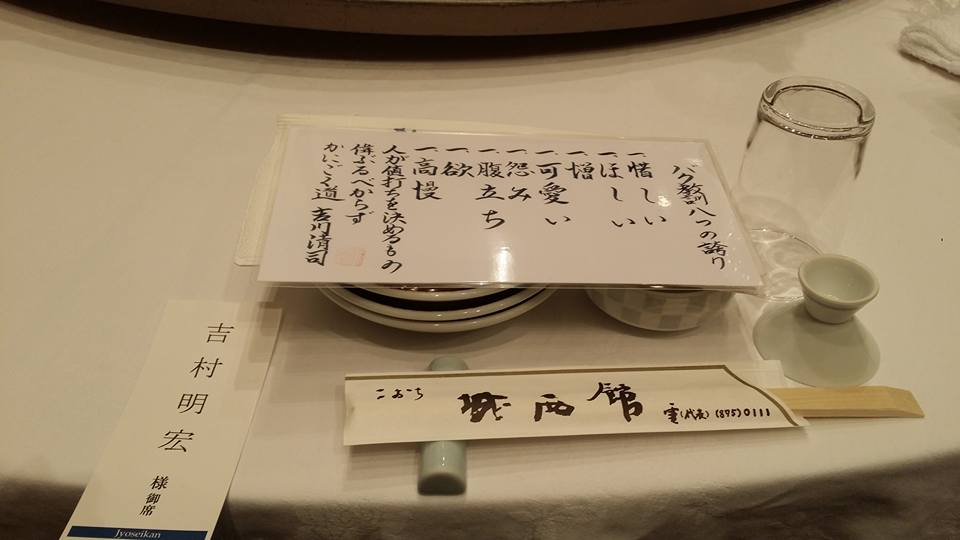 バク教訓八つの誇り
一、惜しい
一、ほしい
一、憎
一、可愛い
一、怨み
一、腹立ち
一、欲
一、高慢
人が値打ちを決めるもの
偉ぶるべからず
かにごく道 吉川清司
吉村明宏 様 御席
Jyoseikan
こおち 城西館 電(代表)(875)0111